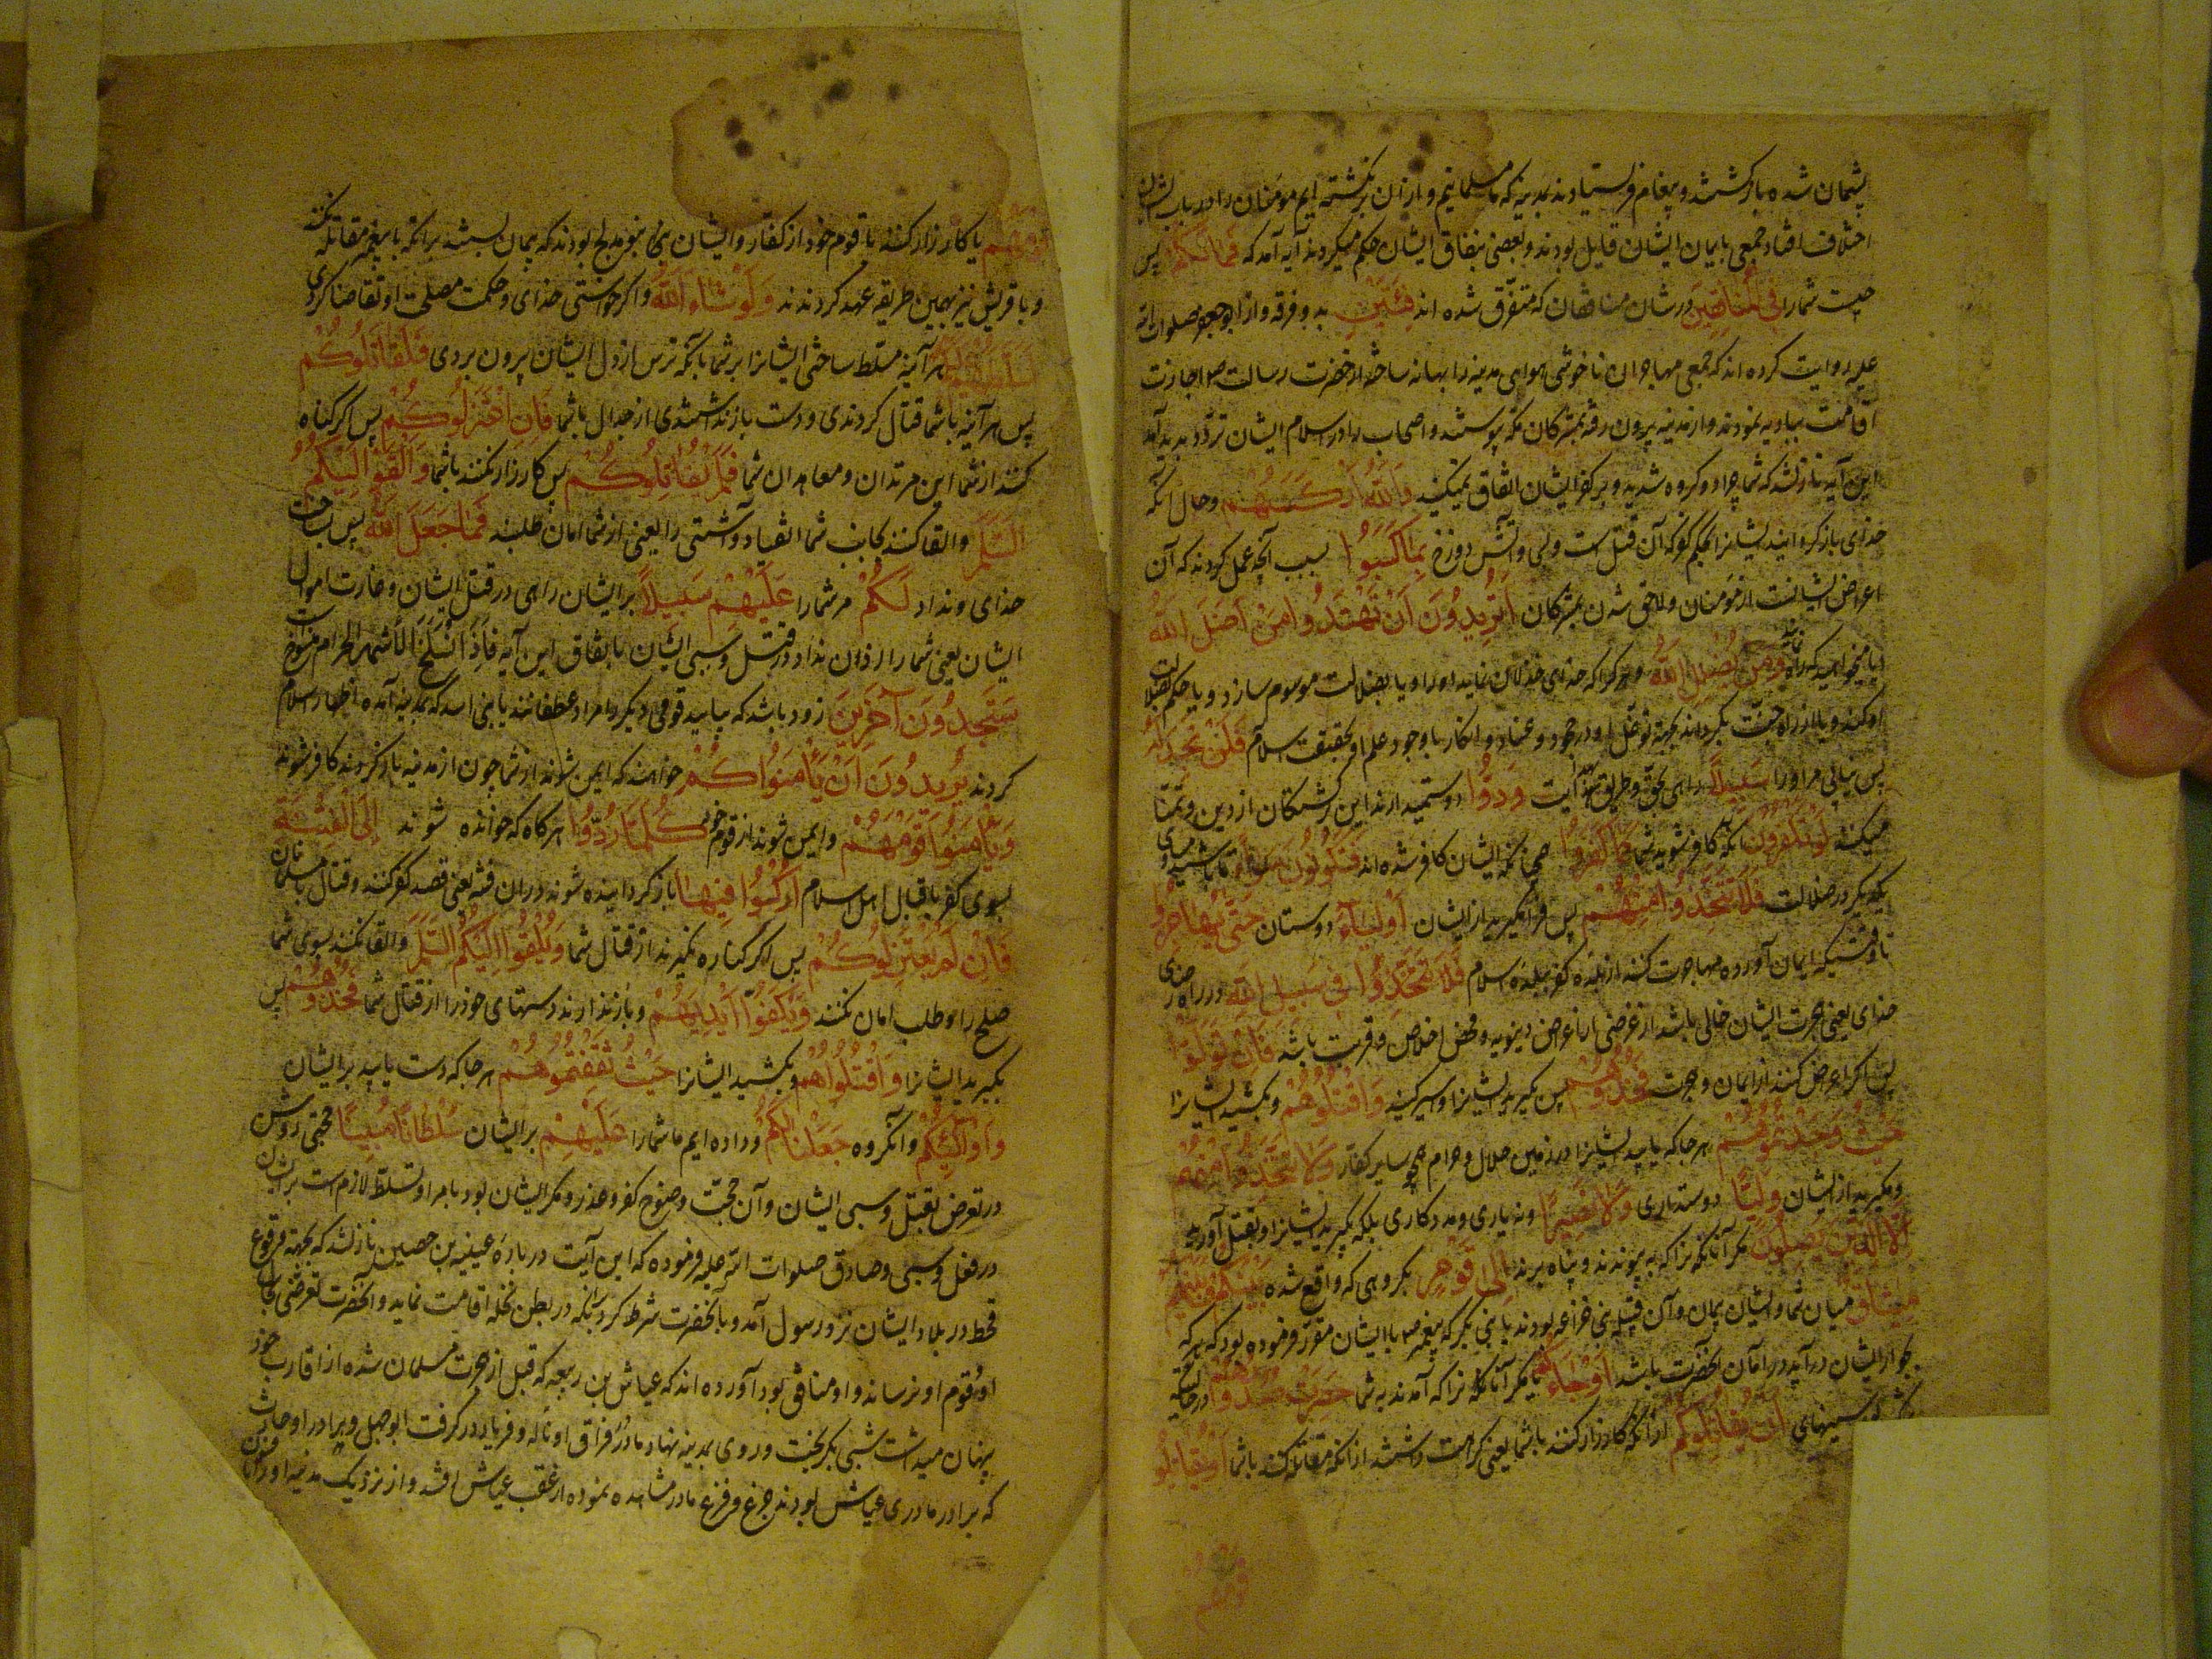 پشیمان شده بازگشتند و پیغام فرستادند بمدینه که ما مسلمانیم و از ان برنگشته ایم مومنان را در باب ایشان
اختلاف افتاد جمعی بایمان ایشان قایل بودند و بعضی بنفاق ایشان حکم میکردند آیه آمد که فَمَا لَكُمْ پس
چیست شمارا فِي الْمُنَافِقِينَ در شان منافقان که متفرق شده اند فِئَتَيْنِ بدو فرقه و از ابو جعفر صلوات الله
علیه روایت کرده اند که جمعی مهاجران ناخوشی هوای مدینه را بهانه ساخته از حضرت رسالت ص اجازت
اقامت ببادیه نمودند و از مدینه بیرون رفته بمشرکان مکه پیوستند و اصحاب را در اسلام ایشان تردد پدید آمد
این آیه نازلشد که شما چرا دو گروه شدید و بر کفر ایشان اتفاق نمیکنید وَاللَّهُ أَرْكَسَهُمْ و حال آنکه
خدای بازگردانید ایشانرا بحکم کفر که آن قتل است و سبی و آتش دوزخ بِمَا كَسَبُوا بسبب آنچه عمل کردند که آن
اعراض ایشانست از مومنان و لاحق شدن بمشرکان أَتُرِيدُونَ أَنْ تَهْتَدُوا مَنْ أَضَلَّ اللَّهُ
ایا میخواهید که راه نمائید وَمَنْ يُضْلِلِ اللَّهُ و هر کرا که خدای خذلان نماید اورا و یا بضلالت موسوم سازد و یا حکم بضلالت
او کند و یا از راه جنت بگرداند بجهة توغل او در جحود و عناد و انکار با وجود علم او بحقیقت اسلام فَلَنْ تَجِدَ لَهُ
پس نیابی مر اورا سَبِيلًا راهی بحق و طریق هدایت وَدُّوا دوست میدارند این برگشتگان از دین و تمنا
میکنند لَوْ تَكْفُرُونَ آنکه کافر شوید شما كَمَا كَفَرُوا همچنانکه ایشان کافر شده اند فَتَكُونُونَ سَوَاءً تا باشید مساوی
یکدیگر در ضلالت فَلَا تَتَّخِذُوا مِنْهُمْ پس فرا مگیرید از ایشان أَوْلِيَاءَ دوستان حَتَّى يُهَاجِرُوا
تا وقتیکه ایمان آورده مهاجرت کنند از بلده کفر ببلده اسلام فِي سَبِيلِ اللَّهِ در راه رضای
خدای یعنی هجرت ایشان خالی باشد از غرضی از اغراض دنیویه و محض اخلاص و قربت باشد فَإِنْ تَوَلَّوْا
پس اگر اعراض کنند از ایمان و هجرت فَخُذُوهُمْ پس بگیرید ایشانرا و اسیر کنید وَاقْتُلُوهُمْ و بکشید ایشانرا
حَيْثُ وَجَدْتُمُوهُمْ هر جا که یابید ایشانرا در زمین حلال و حرام همچو سایر کفار وَلَا تَتَّخِذُوا مِنْهُمْ
و مگیرید از ایشان وَلِيًّا دوستداری وَلَا نَصِيرًا و نه یاری و مددکاری بلکه بگیرید ایشانرا و بقتل آورید
إِلَّا الَّذِينَ يَصِلُونَ مگر آنانکه نزا که به پیوندند و پناه برند إِلَى قَوْمٍ بگروهی که واقع شده بَيْنَكُمْ وَبَيْنَهُمْ
مِيثَاقٌ میان شما و ایشان پیمان و آن قبیله بنی خزاعه بودند یا بنی بکر که پیغمبر ص با ایشان مقرر فرموده بود که هر که
بجوار ایشان درآید در امان آنحضرت باشد أَوْ جَاءُوكُمْ یا مگر آنانکه نزا که آمدند به شما حَصِرَتْ صُدُورُهُمْ در حالتیکه
سینهای أَنْ يُقَاتِلُوكُمْ از آنکه کارزار کنند با شما یعنی کراهت داشتند از انکه مقاتله کنند باشما أَوْ يُقَاتِلُوا
قَوْمَهُمْ
قَوْمَهُمْ یا کارزار کنند با قوم خود از کفار و ایشان بنی مدلج بودند که پیمان بستند بر آنکه با پیغمبر مقاتله نکنند
و با قریش نیز بهمین طریقه عهد کردند وَلَوْ شَاءَ اللَّهُ و اگر خواستی خدای و حکمت مصلحت او تقاضا کردی
لَسَلَّطَهُمْ عَلَيْكُمْ هر آینه مسلط ساختی ایشانرا بر شما بآنکه ترس از دل ایشان بیرون بردی فَلَقَاتَلُوكُمْ
پس هر آینه با شما قتال کردندی و دست باز نداشتندی از جدال با شما فَإِنِ اعْتَزَلُوكُمْ پس اگر کناره
کنند از شما این مرتدان و معاهدان شما فَلَمْ يُقَاتِلُوكُمْ پس کارزار نکنند با شما وَأَلْقَوْا إِلَيْكُمُ
السَّلَمَ و القا کنند بجانب شما انقیاد و آشتی را یعنی از شما امان طلبند فَمَا جَعَلَ اللَّهُ پس نساخت
خدای و نداد لَكُمْ مر شمارا عَلَيْهِمْ سَبِيلًا بر ایشان راهی در قتل ایشان و غارت اموال
ایشان یعنی شما را اذن نداد در قتل و سبی ایشان باتفاق این آیه فَإِذَا انْسَلَخَ الْأَشْهُرُ الْحُرُمُ منسوخ است
سَتَجِدُونَ آخَرِينَ زود باشد که بیابید قومی دیگر را مراد غطفانند یا بنی اسد که بمدینه آمده اظهار اسلام
کردند يُرِيدُونَ أَنْ يَأْمَنُوكُمْ خواهند که ایمن شوند از شما چون از مدینه بازگردند کافر شوند
وَيَأْمَنُوا قَوْمَهُمْ و ایمن شوند از قوم خود كُلَّمَا رُدُّوا هرگاه که خوانده شوند إِلَى الْفِتْنَةِ
بسوی کفر یا قتال اهل اسلام أُرْكِسُوا فِيهَا بازگردانیده شوند در ان فتنه یعنی قصد کفر کنند و قتال با مسلمانان
فَإِنْ لَمْ يَعْتَزِلُوكُمْ پس اگر کناره نگیرند از قتال شما وَيُلْقُوا إِلَيْكُمُ السَّلَمَ و القا نکنند بسوی شما
صلح را و طلب امان نکنند وَيَكُفُّوا أَيْدِيَهُمْ و باز ندارند دستهای خود را از قتال شما فَخُذُوهُمْ پس
بگیرید ایشانرا وَاقْتُلُوهُمْ و بکشید ایشانرا حَيْثُ ثَقِفْتُمُوهُمْ هر جا که دست یابید بر ایشان
وَأُولَئِكُمْ و آنگروه جَعَلْنَا لَكُمْ و داده ایم ما شمارا عَلَيْهِمْ بر ایشان سُلْطَانًا مُبِينًا حجتی روشن
در تعرض بقتل و سبی ایشان و آن حجت وضوح کفر و عذر و مکر ایشان بود یا مراد تسلط لازم است بر ایشان
در فعل و سبی و صادق صلوات الله علیه فرموده که این آیت در باره عیینه بن حصین نازلشد که بجهة وقوع
قحط در بلاد ایشان نزد رسول آمد و با آنحضرت شرط کرد بر آنکه در بطن نخله اقامت نماید و آنحضرت تعرضی بجان
او و قوم او نرساند و او منافق بود آورده اند که عیاش بن ربیعه که قبل از هجرت مسلمان شده از اقارب خود
پنهان میداشت شبی بگریخت و روی بمدینه نهاد مادر از فراق او ناله و فریاد در گرفت ابوجهل و برادر او حارث
که برادر مادری عیاش بودند جزع و فزع مادر مشاهده نموده از عقب عیاش افتند و از نزدیک مدینه اورا